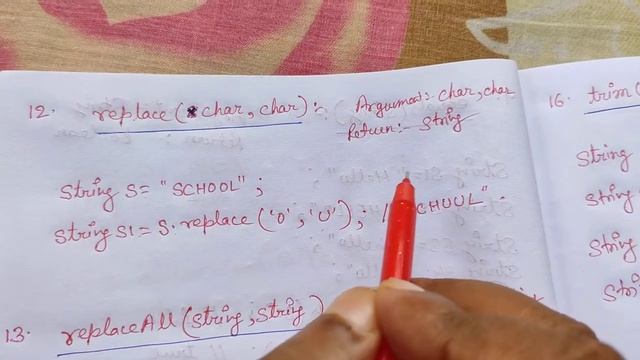 12. replace(char, char):- Argument:- char, char
Return:- String
String S= "SCHOOL";
String S1= S.replace('O','U'); CHUUL"
13. replaceAll(String, String)
16. trim(
String
Stri
Stri
Stri